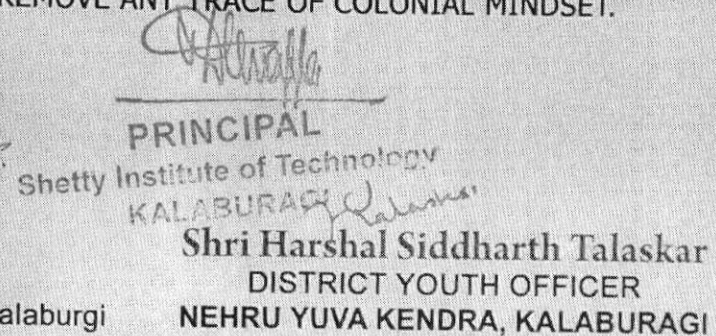 REMOVE ANY TRACE OF COLONIAL MINDSET.
PRINCIPAL
Shetty Institute of Technology
KALABURAGI
Shri Harshal Siddharth Talaskar
DISTRICT YOUTH OFFICER
alaburgi NEHRU YUVA KENDRA, KALABURAGI